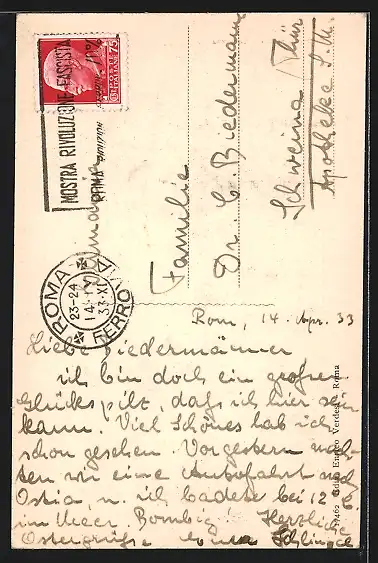 MOSTRA RIVOLUZIONE FASCISTA
ROMA
ROMA
FERROVIA
23-24
14.IV
33.XI
75
Germania
Familie
Dr. C. Biedermann
Schweina / Thür
Apotheke S. M.
Rom, 14. Apr. 33
Liebe Biedermänner
ich bin doch ein großer
Glückspilz, daß ich hier sein
kann. Viel Schönes hab ich
schon gesehen. Vorgestern mach-
ten wir eine Autofahrt nach
Ostia, u. ich badete bei 12°
im Meer. Bombig! Herzliche
Ostergrüße
Verdesi, Roma